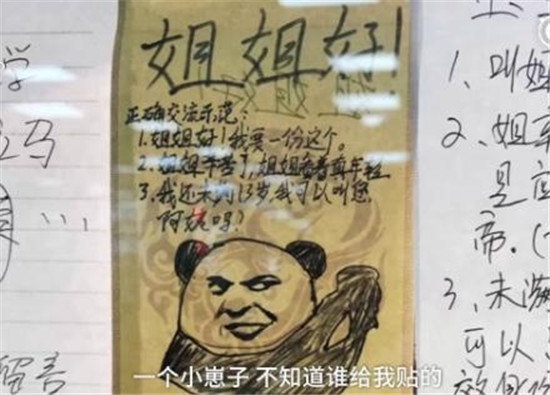 学
马
留言
姐姐好!
正确交流示范:
1.姐姐好!我要一份这个。
2.姐姐辛苦了,姐姐看着真年轻
3.我还未满13岁,我可以叫您
阿姨吗?
1、叫姐
2、姐车
是
帝.(
3、未满
可以
一个小崽子 不知道谁给我贴的